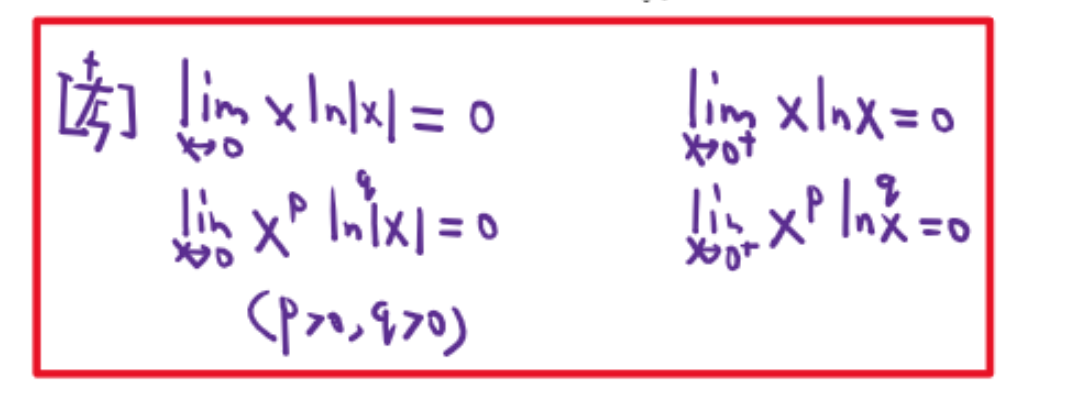 [考] lim x→0 x ln|x| = 0 lim x→0⁺ x ln x = 0
lim x→0 x^p ln^q|x| = 0 lim x→0⁺ x^p ln^q x = 0
(p>0, q>0)